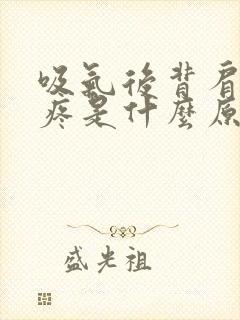 吸氣後背肩
疼是什麼原
盛光祖